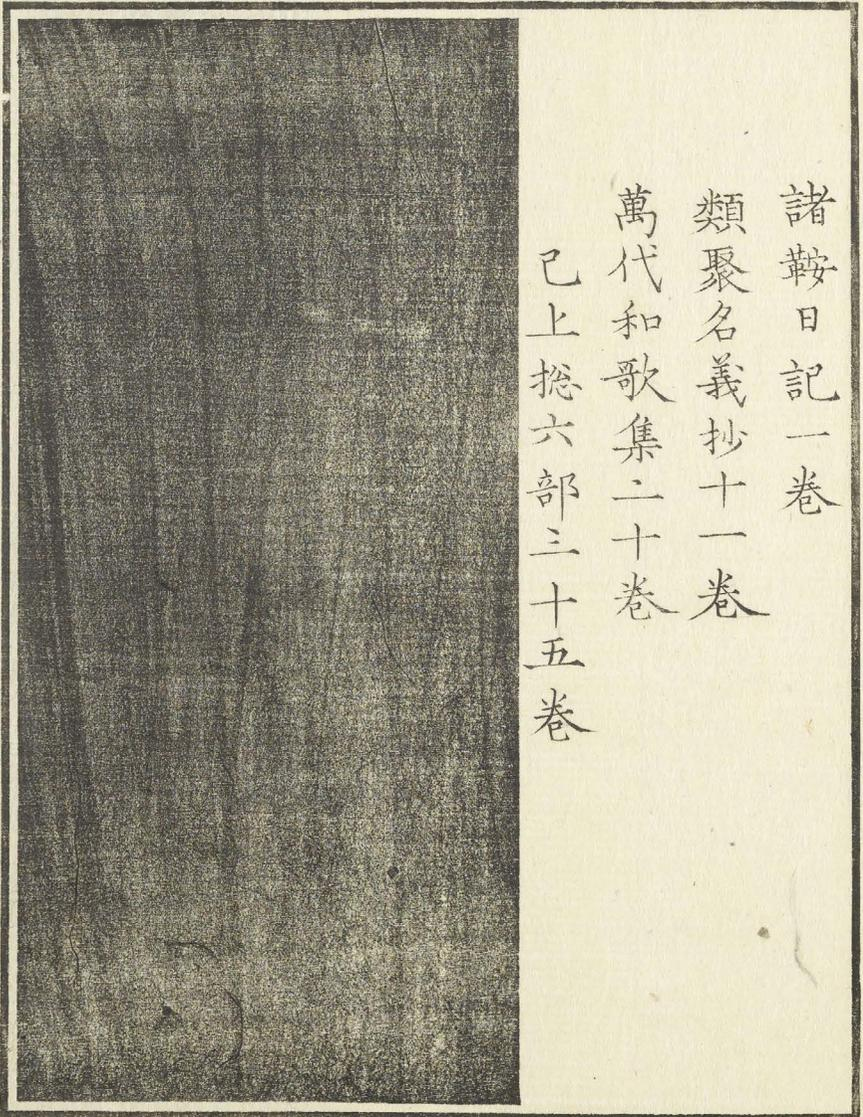 諸鞍日記一巻
類聚名義抄十一巻
萬代和歌集二十巻
已上揔六部三十五巻